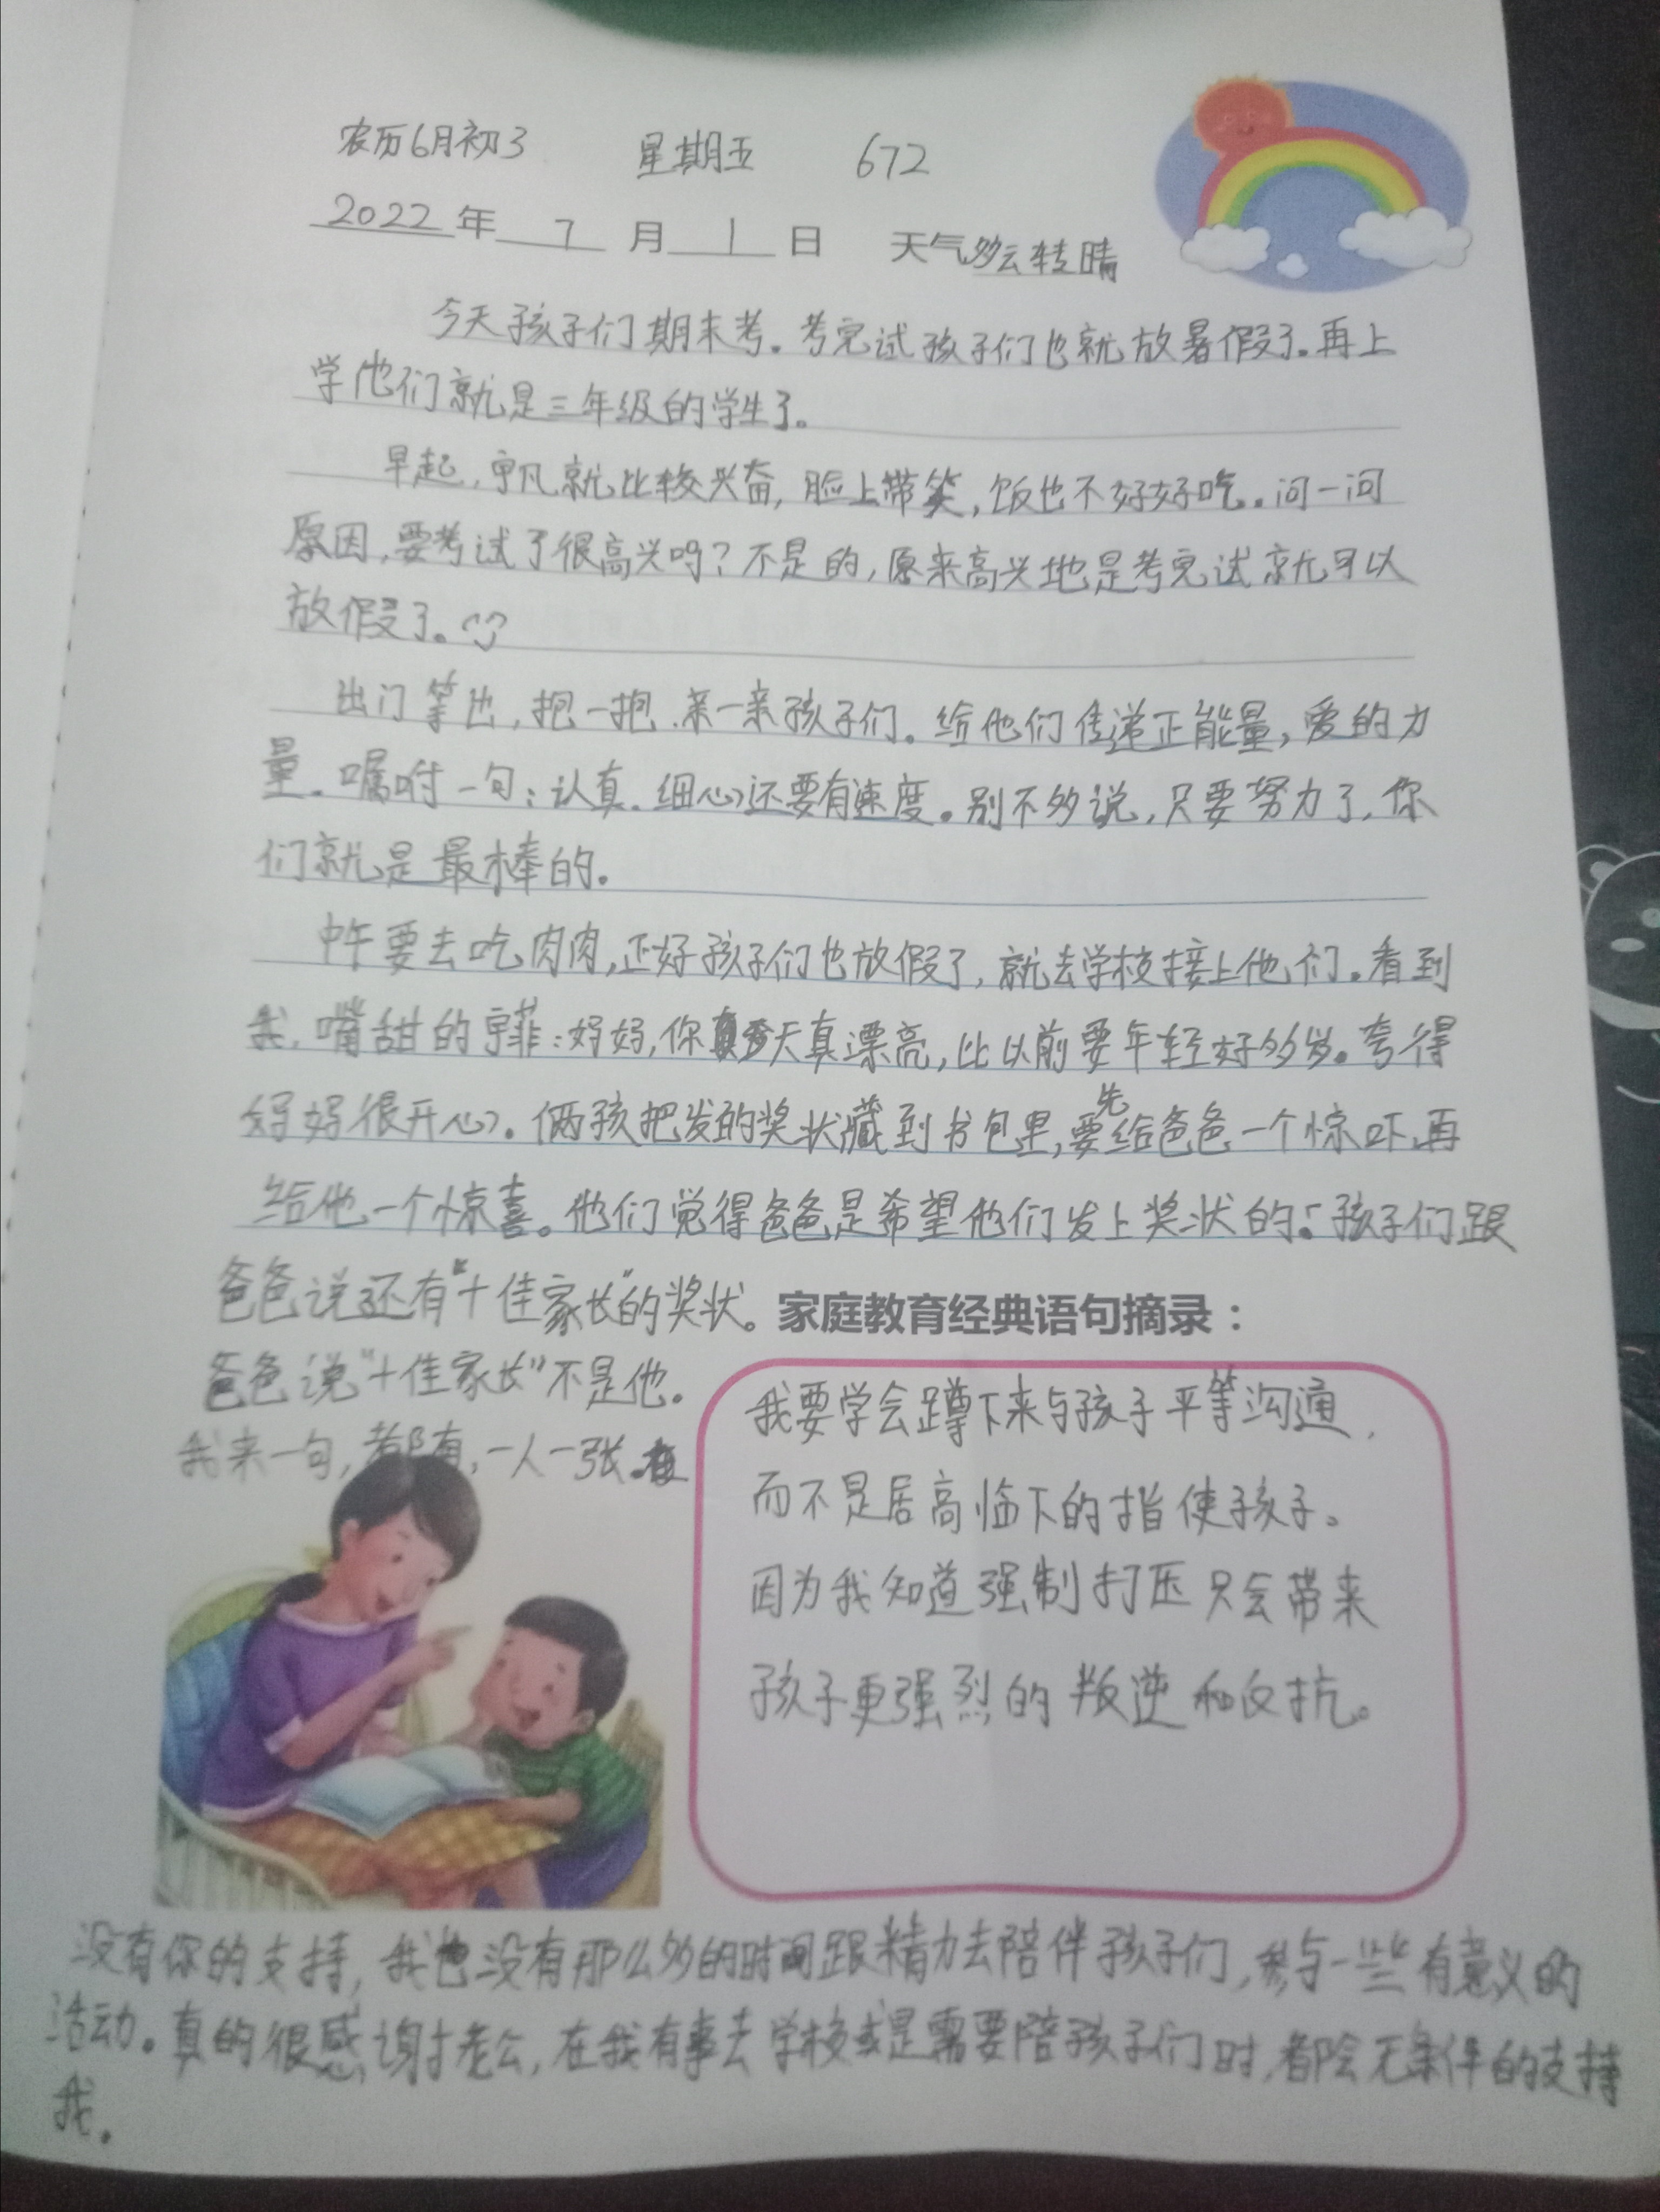 农历6月初3 星期五 672
2022年 7 月 1 日 天气多云转晴
今天孩子们期末考。考完试孩子们也就放暑假了。再上
学他们就是三年级的学生了。
早起,宇凡就比较兴奋,脸上带笑,饭也不好好吃。问一问
原因,要考试了很高兴吗?不是的,原来高兴地是考完试就可以
放假了。
出门等也,抱一抱.亲一亲孩子们。给他们传递正能量,爱的力
量。嘱咐一句:认真.细心还要有速度。别不多说,只要努力了,你
们就是最棒的。
中午要去吃肉肉,正好孩子们也放假了,就去学校接上他们。看到
我,嘴甜的宇菲:妈妈,你今天真漂亮,比以前要年轻好多岁。夸得
妈妈很开心。俩孩把发的奖状藏到书包里,要先给爸爸一个惊吓,再
给他一个惊喜。他们觉得爸爸是希望他们发上奖状的。孩子们跟
爸爸说还有“十佳家长”的奖状。
爸爸说“十佳家长”不是他。
我来一句,都有,一人一张。
家庭教育经典语句摘录:
我要学会蹲下来与孩子平等沟通,
而不是居高临下的指使孩子。
因为我知道强制打压只会带来
孩子更强烈的叛逆和反抗。
没有你的支持,我也没有那么多的时间跟精力去陪伴孩子们,参与一些有意义的
活动。真的很感谢老公,在我有事去学校或是需要陪孩子们时,都会无条件的支持
我。